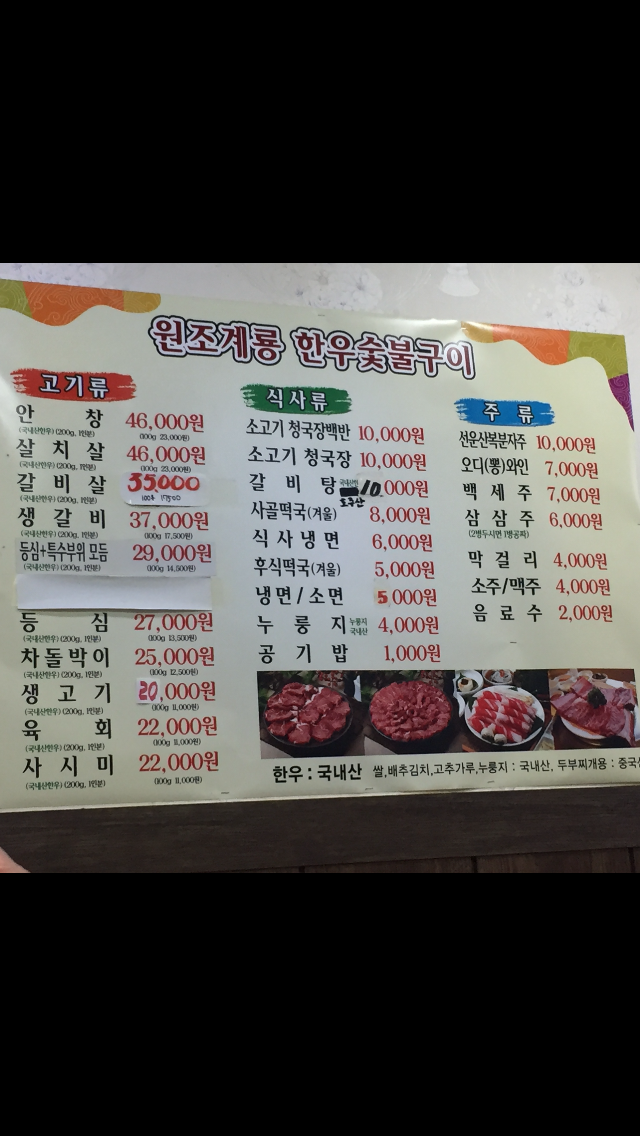 원조계룡 한우숯불구이
고기류
안 창 46,000원
(국내산한우) (200g, 1인분) (100g 23,000원)
살 치 살 46,000원
(국내산한우) (200g, 1인분) (100g 23,000원)
갈 비 살 35,000
(국내산한우) (200g, 1인분) 100g 17500
생 갈 비 37,000원
(국내산한우) (200g, 1인분) (100g 17,500원)
등심+특수부위 모듬 29,000원
(국내산한우) (200g, 1인분) (100g 14,500원)
등 심 27,000원
(국내산한우) (200g, 1인분) (100g 13,500원)
차돌박이 25,000원
(국내산한우) (200g, 1인분) (100g 12,500원)
생 고 기 20,000원
(국내산한우) (200g, 1인분) (100g 11,000원)
육 회 22,000원
(국내산한우) (200g, 1인분) (100g 11,000원)
사 시 미 22,000원
(국내산한우) (200g, 1인분) (100g 11,000원)
식사류
소고기 청국장백반 10,000원
소고기 청국장 10,000원
갈 비 탕 10,000원
사골떡국(겨울) 8,000원
식 사 냉 면 6,000원
후식떡국(겨울) 5,000원
냉면/소면 5,000원
누 룽 지 누룽지 국내산 4,000원
공 기 밥 1,000원
주 류
선운산복분자주 10,000원
오디(뽕)와인 7,000원
백 세 주 7,000원
삼 삼 주 6,000원
(2병두시면 1병공짜)
막 걸 리 4,000원
소주/맥주 4,000원
음 료 수 2,000원
한우 : 국내산 쌀,배추김치,고추가루,누룽지 : 국내산, 두부찌개용 : 중국산